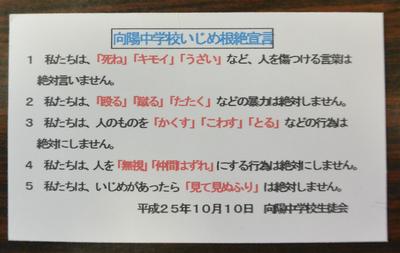 向陽中学校いじめ根絶宣言
1 私たちは、「死ね」「キモイ」「うざい」など、人を傷つける言葉は
絶対言いません。
2 私たちは、「殴る」「蹴る」「たたく」などの暴力は絶対しません。
3 私たちは、人のものを「かくす」「こわす」「とる」などの行為は
絶対にしません。
4 私たちは、人を「無視」「仲間はずれ」にする行為は絶対にしません。
5 私たちは、いじめがあったら「見て見ぬふり」は絶対しません。
平成25年10月10日 向陽中学校生徒会